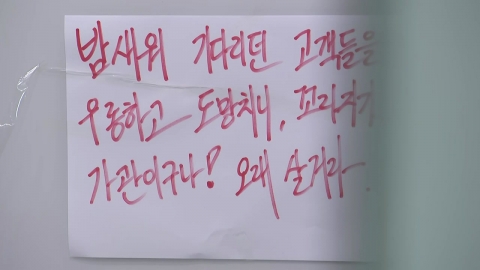 밤새워 기다리던 고객들을
우롱하고 도망치니, 꼬라지가
가관이구나! 오래 살거라.